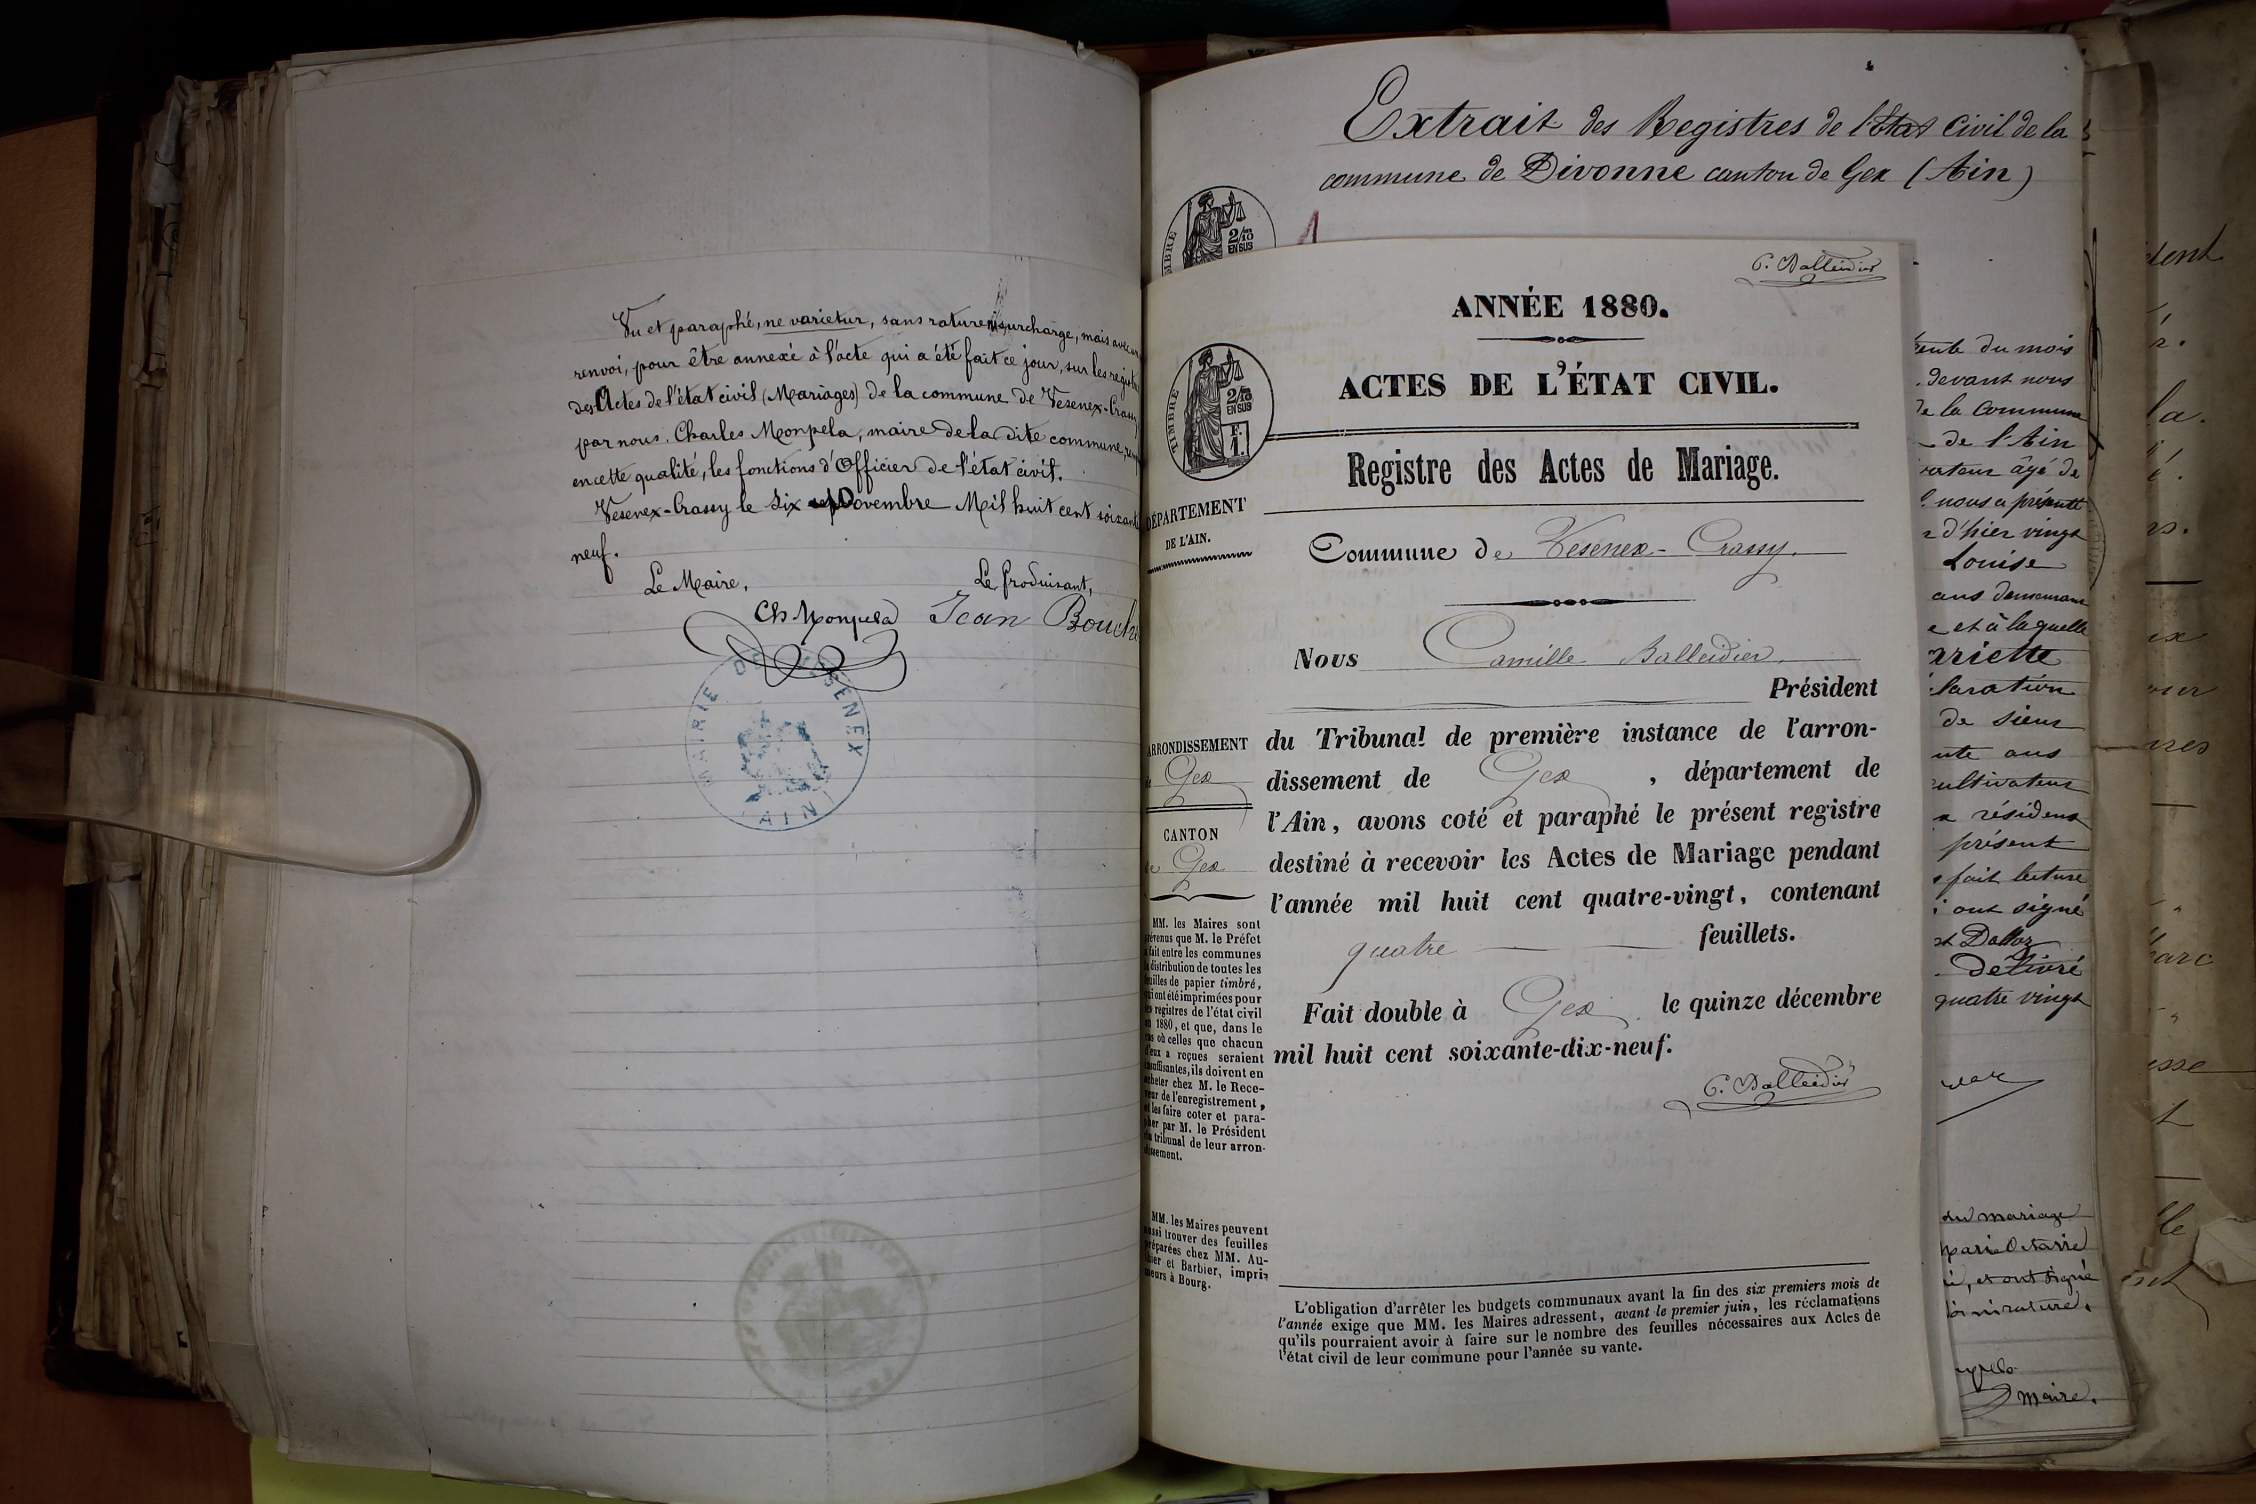 Vu et paraphé, ne varietur, sans rature ni surcharge, mais avec un
renvoi, pour être annexé à l'acte qui a été fait ce jour, sur les registres
des Actes de l'état civil (Mariages) de la commune de Vesenex-Crassy
par nous. Charles Monpela, maire de la dite commune,
en cette qualité, les fonctions d'Officier de l'état civil.
Vesenex-Crassy le six Novembre Mil huit cent soixante
neuf.
Le Maire,
Le Produisant,
Ch Monpela
Jean Bouch
MAIRIE DE VESENEX
AIN
Extrait des Registres de l'état Civil de la
commune de Divonne canton de Gex (Ain)
TIMBRE
2/10
EN SUS
C. Balleidier
ANNÉE 1880.
ACTES DE L'ÉTAT CIVIL.
TIMBRE
2/10
EN SUS
F.
1.
Registre des Actes de Mariage.
DÉPARTEMENT
DE L'AIN.
Commune de Vesenex-Crassy.
Nous Camille Balleidier,
Président
du Tribunal de première instance de l'arron-
dissement de Gex, département de
l'Ain, avons coté et paraphé le présent registre
destiné à recevoir les Actes de Mariage pendant
l'année mil huit cent quatre-vingt, contenant
quatre feuillets.
Fait double à Gex. le quinze décembre
mil huit cent soixante-dix-neuf.
C. Balleidier
ARRONDISSEMENT
de Gex
CANTON
de Gex
MM. les Maires sont
prévenus que M. le Préfet
a fait entre les communes
la distribution de toutes les
feuilles de papier timbré,
qui ont été imprimées pour
les registres de l'état civil
en 1880, et que, dans le
cas où celles que chacun
d'eux a reçues seraient
insuffisantes, ils doivent en
acheter chez M. le Rece-
veur de l'enregistrement,
et les faire coter et para-
pher par M. le Président
du tribunal de leur arron-
dissement.
MM. les Maires peuvent
aussi trouver des feuilles
préparées chez MM. Au-
thier et Barbier, impri-
meurs à Bourg.
L'obligation d'arrêter les budgets communaux avant la fin des six premiers mois de
l'année exige que MM. les Maires adressent, avant le premier juin, les réclamations
qu'ils pourraient avoir à faire sur le nombre des feuilles nécessaires aux Actes de
l'état civil de leur commune pour l'année su vante.
du mois
devant nous
de la Commune
de l'Ain
âgé de
nous a présenté
d'hier vingt
Louise
ans demeurant
et à laquelle
de sieur
ans
cultivateur
présent
fait lecture
ont signé
et Dalloz
Délivré
quatre vingt
du mariage
Marie Octavie
et ont signé
maire.